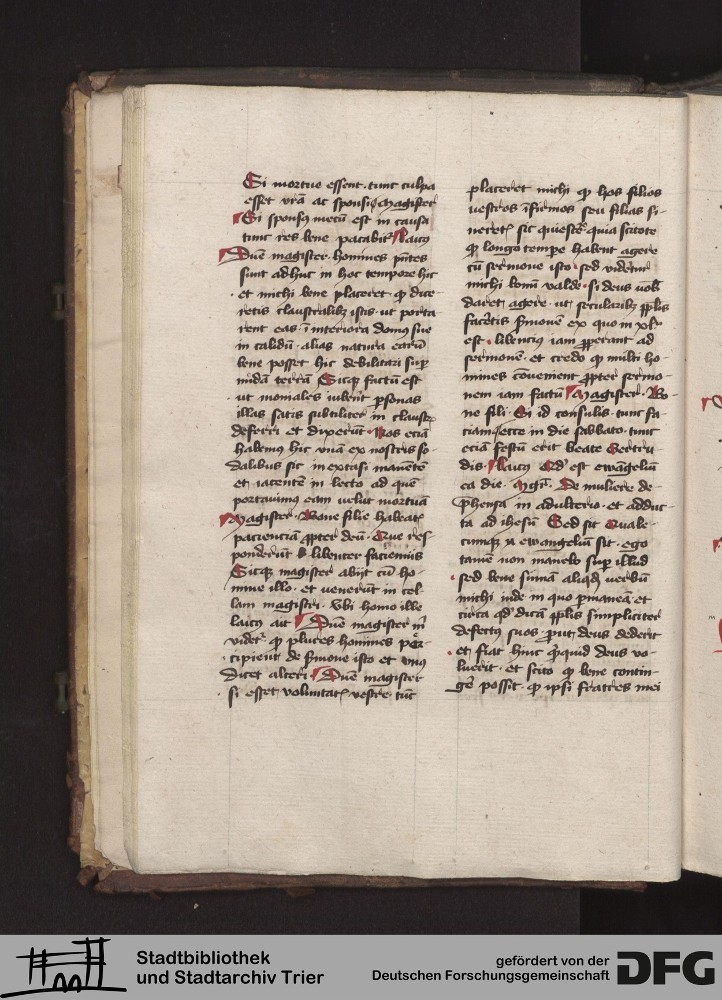 Si mortue essent. tunc culpa
esset vr̄a ac sponsi. Magister
Si sponsꝰ mecū est in causa
tunc res bene pacabit᷑. Laicꝰ
Dn̄e magister. homines pn̄tes
sunt adhuc in hoc tempore hic
et michi bene placeret. ꝙ dice
retis claustralibꝫ istis. ut porta
rent eas ī interiora domꝰ sue
in calidū. alias natura earū
bene posset hic debilitari suꝑ
nudam terrā Sicqꝫ factū est
ut moniales iuberēt ꝑsonas
illas satis subtiliter in claustꝝ
deferri et dixerūt. Nos eciā
habemꝰ hic vnā ex nostris so
dalibus sic in extasi manētē
et iacentē in lecto ad quē
portauimꝰ eam velut mortuā
Magister. Bone filie habeatꝭ
pacienciā ꝓpter deū. Que res-
ponderūt libenter faciemus
Sicqꝫ magister abijt cū ho-
mine illo. et venerūt in cel-
lam magistri. Vbi homo ille
laicꝰ ait Dn̄e magister m̄
videt᷑ ꝙ plures homines ꝑ-
cipient de ẜmone isto et vnꝰ
dicet alteri. Dn̄e magister
si esset voluntatꝭ vestre. tūc
placeret michi ꝙ hos filios
vestros īfirmos seu filias si-
neretꝭ sic quiescer̄. quia scitote
ꝙ longo tempore habent agere
cū sermone isto. sed videtur
michi bonū valde. si deus vob̄
daret agere. ut secularibꝫ ip̄lis
facētis ẜmonē ex quo in xl
est. libencius iam ꝓperant ad
sermonē. et credo ꝙ multi ho-
mines cōuenient ꝓpter sermo-
nem iam factū Magister. Bo-
ne fili. Si id consulis. tunc fa-
ciam. ecce in die sabbato. tunc
eciā festū erit beate Gertru-
dis. Laicꝰ Qd̓ est ewāgeliū
ea die. Mgr̄. De muliere de-
p̄hensa in adulterio. et adduc-
ta ad ihesū Sed sit Quale-
cumqꝫ ewangeliū sit. ego
tamē non manebo suꝑ illud
sed bene sumā aliqd̓ verbū
michi inde in quo ꝑmaneā et
circa qd̓ dicā ip̄lis simpliciter
defectꝰ suos. ꝓut deus dederit
et fiat hinc quicquid deus vo-
luerit. et scito ꝙ bene contin-
gē possit. ꝙ ipsi fratres mei
Stadtbibliothek
und Stadtarchiv Trier
gefördert von der
Deutschen Forschungsgemeinschaft
DFG